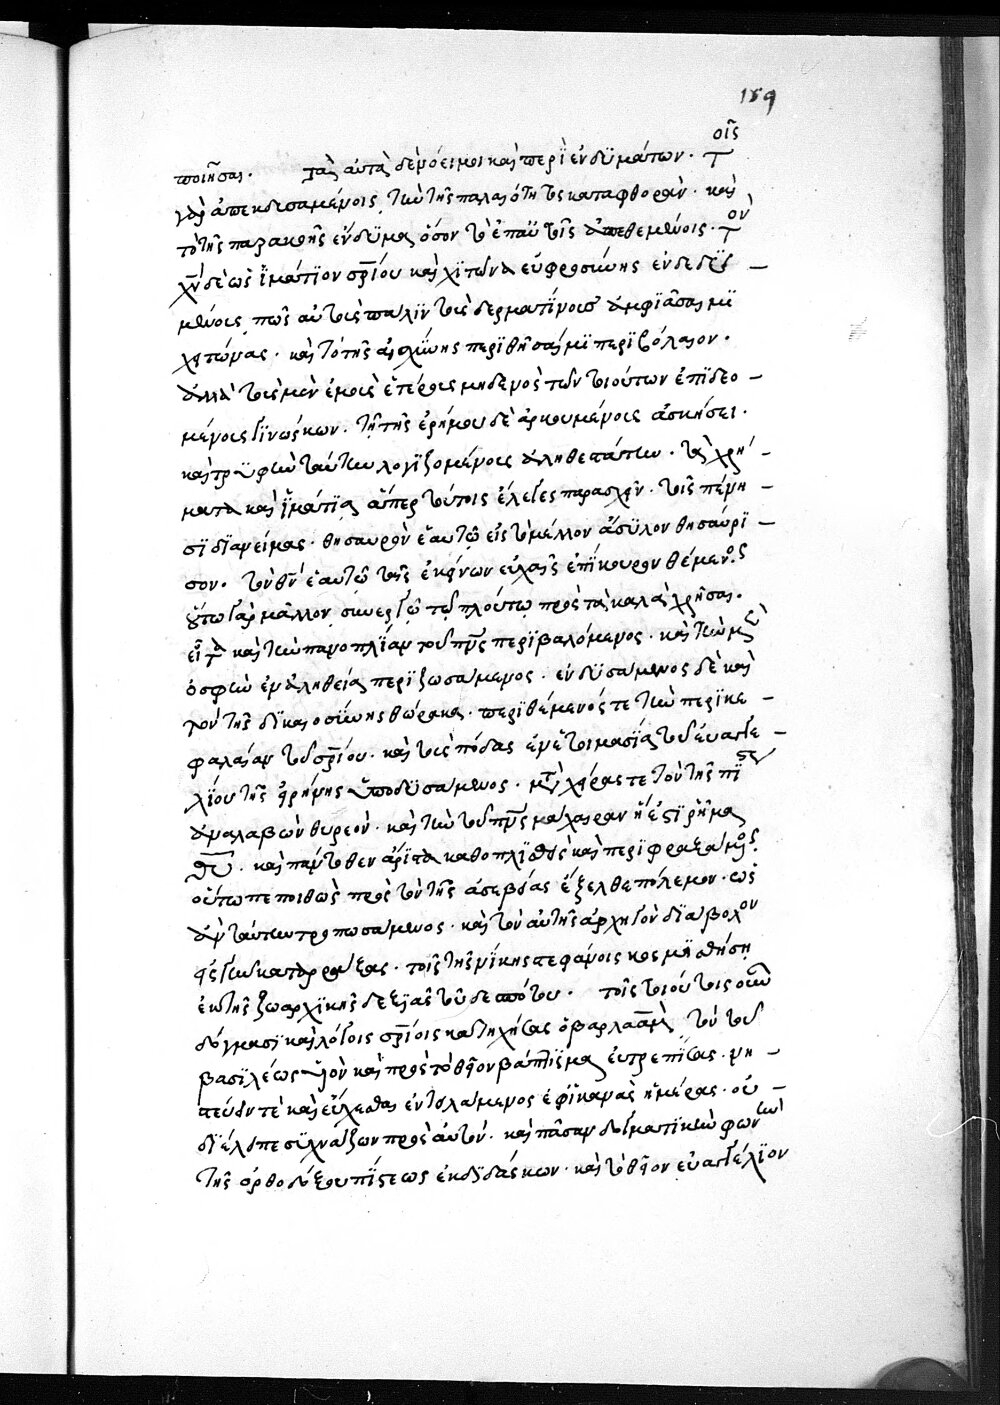 159
ποιῆσαι. Ταῦτὰ δέ νόει μοι καὶ περὶ ἐνδυμάτων. τοῖς
γὰρ ἀπεκδυσαμένοις τὴν τῆς παλαιότητος καταφθορὰν. καὶ
τὸ τῆς παρακοῆς ἔνδυμα ὅσον τὸ ἐπ' αὐτοῖς ἀποθεμένοις. τὸν
χν̅ δὲ ὡς ἱμάτιον σρ̅ίου καὶ χιτῶνα εὐφροσύνης ἐνδεδυ
μένοις, πῶς αὐτοὺς πάλιν τοὺς δερματίνους ἀμφιάσαιμι
χιτῶνας. καὶ τὸ τῆς αἰσχύνης περιθήσαιμι περιβόλαιον.
ἀλλὰ τοὺς μὲν ἐμοὺς ἑτέρους μηδενὸς τῶν τοιούτων ἐπιδεο
μένους γινώσκων. τῇ τῆς ἐρήμου δὲ ἀρκουμένους ἀσκήσει.
καὶ τρυφὴν ταύτην λογιζομένους ἀληθεστάτην. τὰ χρή
ματα καὶ ἱμάτια ἅπερ τούτοις ἔλεγες παρασχεῖν. τοῖς πένη
σι διανείμας. θησαυρὸν ἑαυτῷ εἰς τὸ μέλλον ἄσυλον θησαύρι
σον. τὸν θν̅ ἑαυτῷ ταῖς ἐκείνων εὐχαῖς ἐπίκουρον θέμενος
οὕτω γὰρ μᾶλλον συνεργῷ τῷ πλούτῳ πρὸς τὰ καλὰ χρῆσαι.
εἶτα καὶ τὴν πανοπλίαν τοῦ πν̅ς περιβαλόμενος. καὶ τὴν μὲν
ὀσφὺν ἐν ἀληθείᾳ περιζωσάμενος. ἐνδυσάμενος δὲ καὶ
τὸν τῆς δικαιοσύνης θώρακα. περιθέμενός τε τὴν περικε
φαλαίαν τοῦ σρ̅ίου. καὶ τοὺς πόδας ἐν ἑτοιμασίᾳ τοῦ εὐαγγε
λίου τῆς εἰρήνης ὑποδυσάμενος. μετὰ χεῖρας τε τὸν τῆς πίστεως
ἀναλαβὼν θυρεὸν. καὶ τὴν τοῦ πν̅ς μάχαιραν ἥ ἐστι ῥῆμα
θυ̅. καὶ πάντοθεν ἄριστα καθοπλισθεὶς καὶ περιφραξάμενος.
οὕτω πεποιθὼς πρὸς τὸν τῆς ἀσεβείας ἔξελθε πόλεμον. ὡς
ἂν ταύτην τροπωσάμενος. καὶ τὸν αὐτῆς ἀρχηγὸν διάβολον
εἰς γῆν καταρράξας. τοῖς τῆς νίκης στεφάνοις κοσμηθήσῃ
ἐκ τῆς ζωαρχικῆς δεξιᾶς τοῦ δεσπότου. τοῖς τοιούτοις οὖν
δόγμασι καὶ λόγοις σρ̅ίοις κατηχήσας ὁ βαρλαὰμ τὸν τοῦ
βασιλέως υἱὸν καὶ πρὸς τὸ θεῖον βάπτισμα εὐτρεπίσας. νη
στεύειν τὲ καὶ εὔχεσθαι ἐντειλάμενος ἐφ' ἱκανὰς ἡμέρας. οὐ
διέλειπε συχνάζων πρὸς αὐτὸν. καὶ πᾶσαν δογματικὴν φωνὴν
τῆς ὀρθοδόξου πίστεως ἐκδιδάσκων. καὶ τὸ θεῖον εὐαγγέλιον